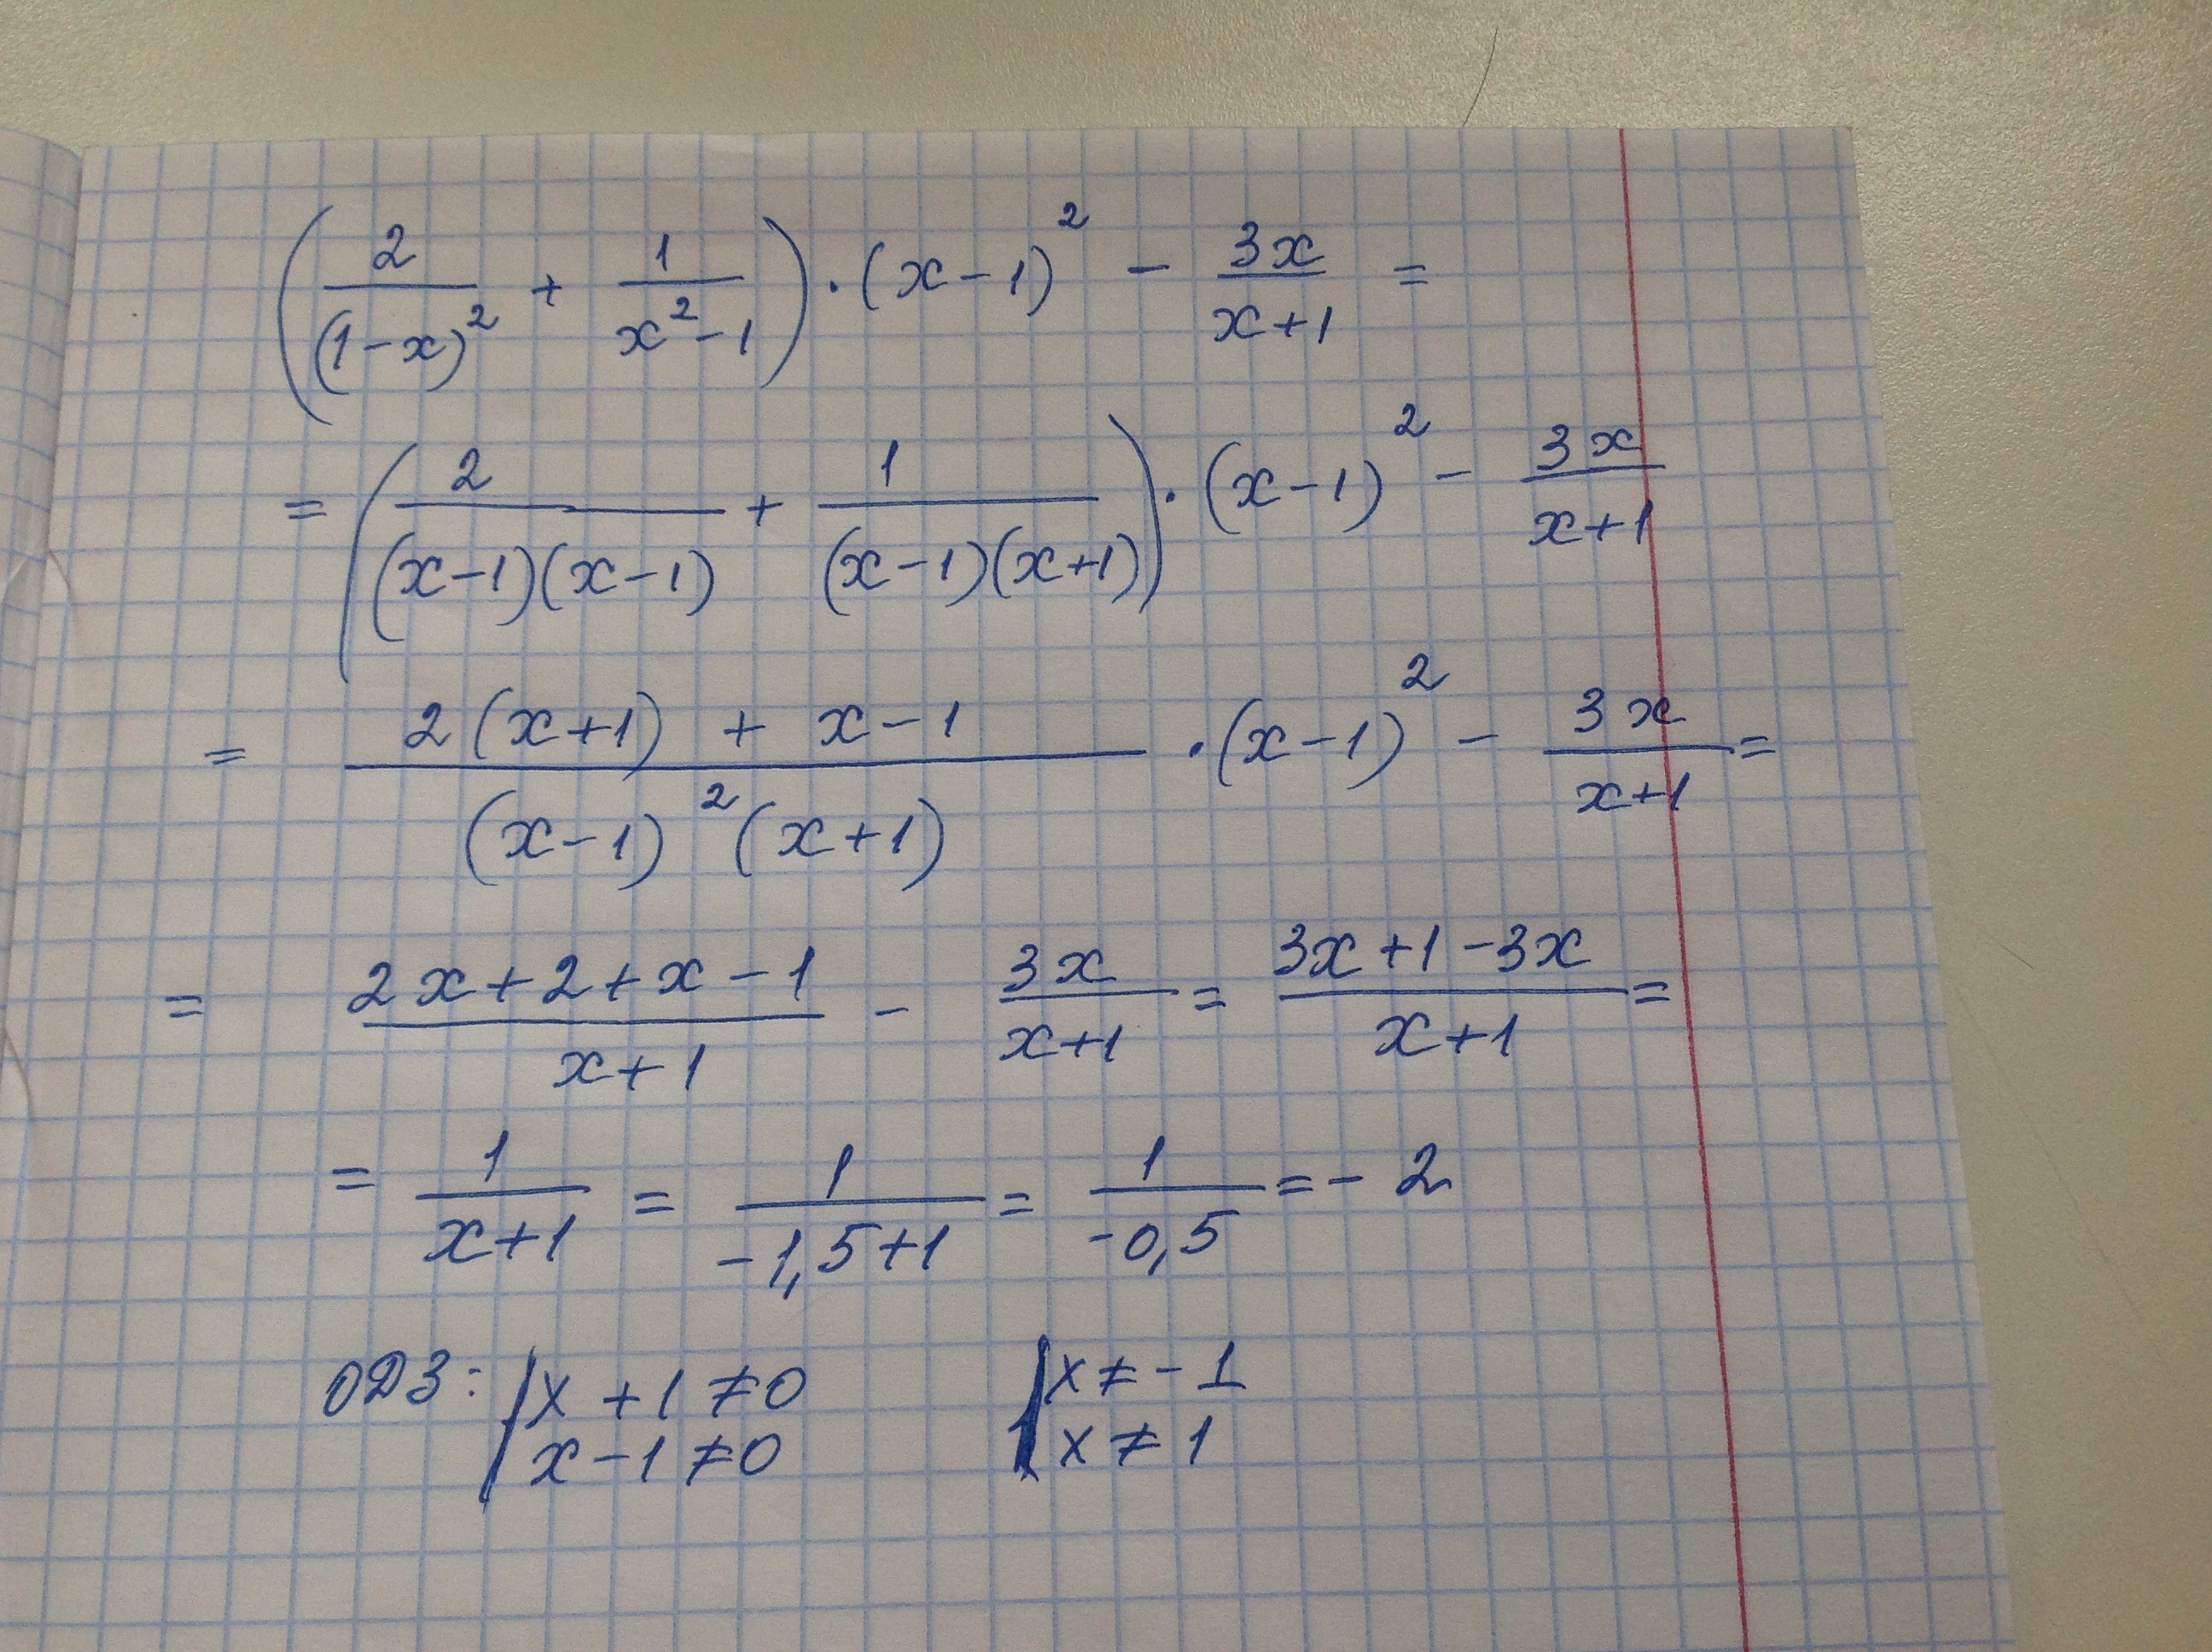 (2/(1-x)² + 1/(x²-1)) · (x-1)² - 3x/(x+1) =
= (2/((x-1)(x-1)) + 1/((x-1)(x+1))) · (x-1)² - 3x/(x+1)
= (2(x+1) + x-1)/((x-1)²(x+1)) · (x-1)² - 3x/(x+1) =
= (2x+2+x-1)/(x+1) - 3x/(x+1) = (3x+1-3x)/(x+1) =
= 1/(x+1) = 1/(-1,5+1) = 1/(-0,5) = -2
ОДЗ: x+1≠0 x≠-1
x-1≠0 x≠1